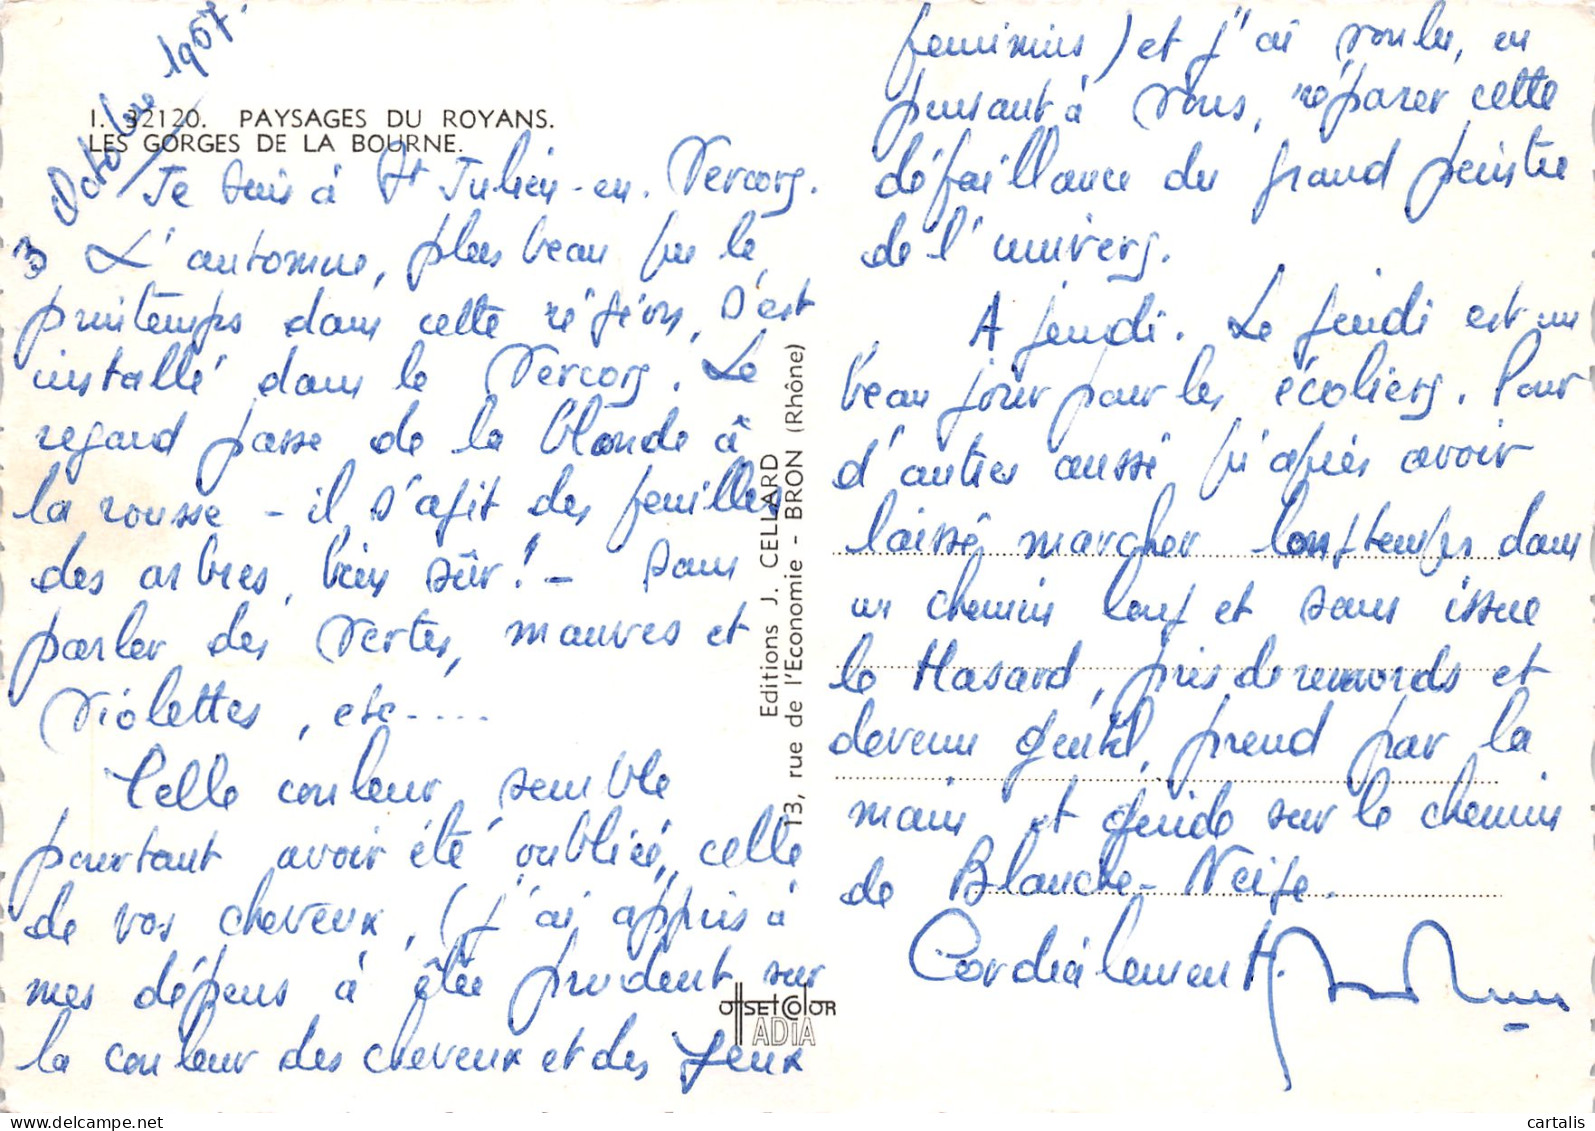 3 Octobre 1967.
I. 32120. PAYSAGES DU ROYANS.
LES GORGES DE LA BOURNE.
Je suis à St Julien-en-Vercors.
L'automne, plus beau que le
printemps dans cette région, s'est
installé dans le Vercors. Le
regard passe de la blonde à
la rousse - il s'agit des feuilles
des arbres, bien sûr! - sans
parler des vertes, mauves et
violettes, etc.....
Celle couleur semble
pourtant avoir été oubliée, celle
de vos cheveux, (j'ai appris à
mes dépens à être prudent sur
la couleur des cheveux et des yeux
féminins) et j'ai voulu, en
pensant à vous, réparer cette
défaillance du grand peintre
de l'univers.
A jeudi. Le jeudi est un
beau jour pour les écoliers. Pour
d'autres aussi qu'après avoir
laissé marcher longtemps dans
un chemin long et sans issue
le Hasard, pris de remords et
devenu gentil, prend par la
main et guide sur le chemin
de Blanche-Neige.
Cordialement.
Editions J. CELLARD
13, rue de l'Economie - BRON (Rhône)
OFFSET COLOR
ADIA
www.delcampe.net
cartalis